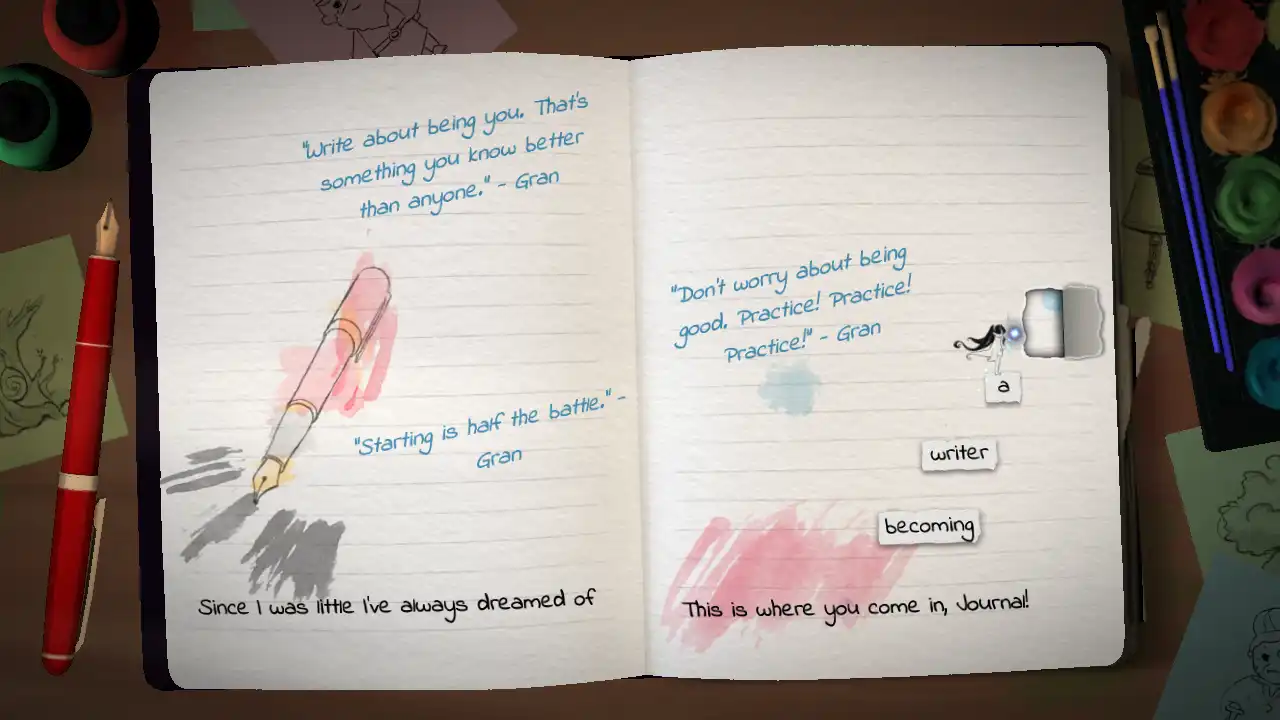 "Write about being you. That's
something you know better
than anyone." - Gran
"Starting is half the battle." -
Gran
Since I was little I've always dreamed of
"Don't worry about being
good. Practice! Practice!
Practice!" - Gran
a
writer
becoming
This is where you come in, Journal!